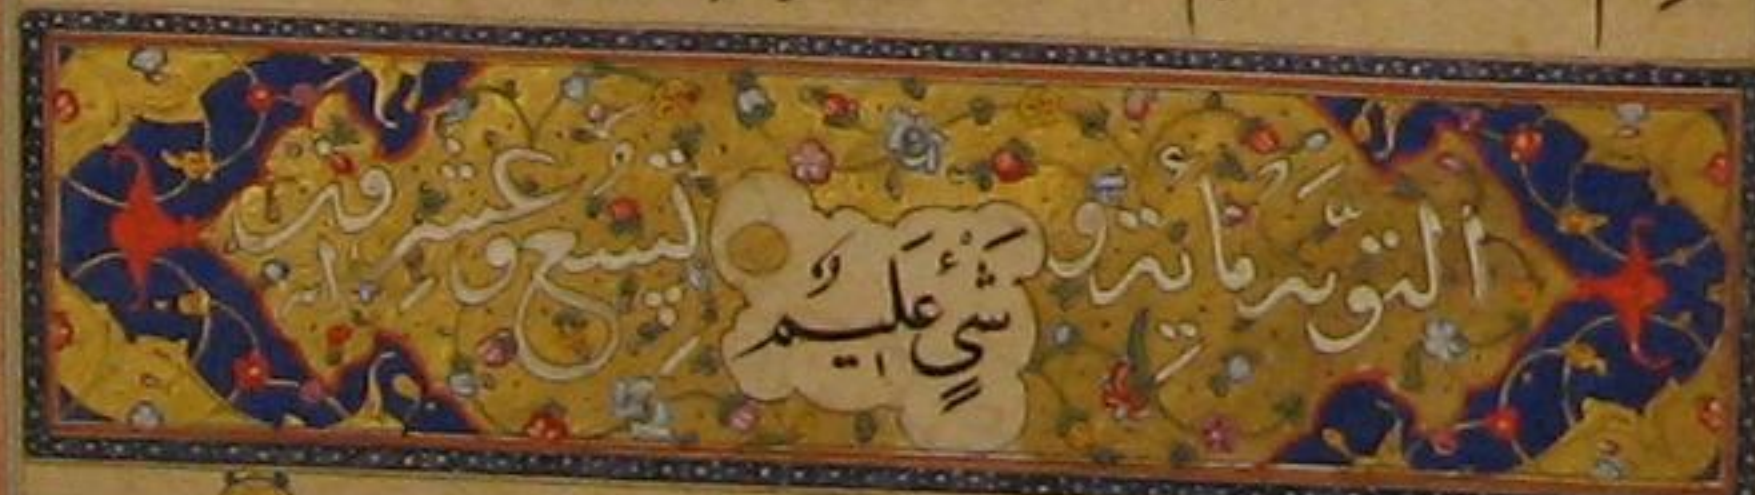 التوبة مائة و
شَیْءٍ عَلِیمٌ
تسع وعشرون اية